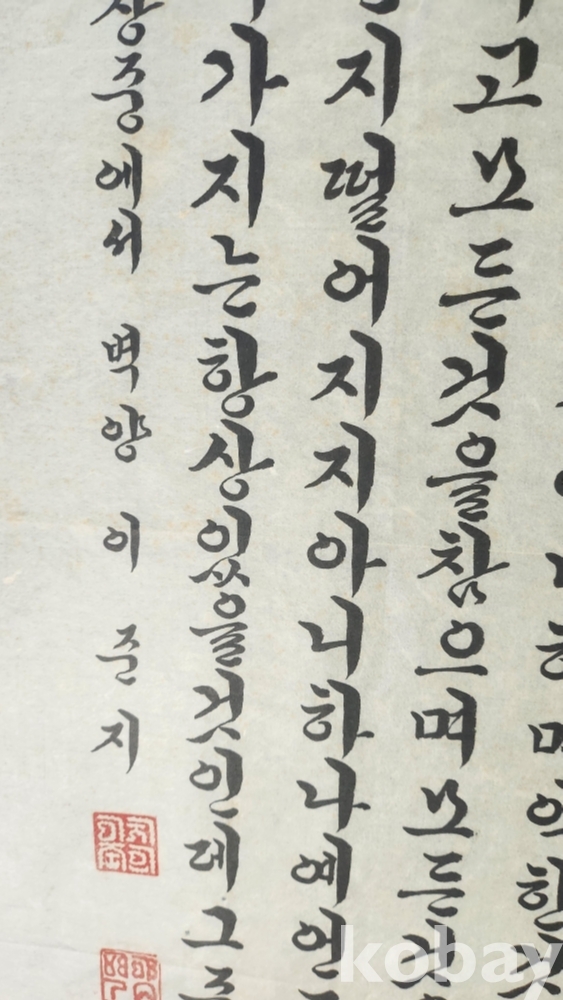 고모든것을참으며모든것
지떨어지지아니하나예언
가지는항상있을것인데그
상중에서 벽양 이 준지
kobay